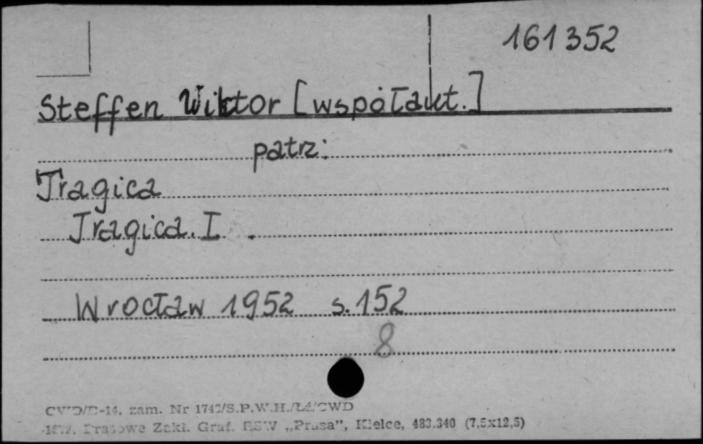 161352
Steffen Wiktor [współaut.]
patrz:
Tragica
Tragica. I.
Wrocław 1952 s. 152
8
zam. Nr
Zakł. Graf. RSW „Prasa”, Kielce, 483.340 (7,5x12,5)